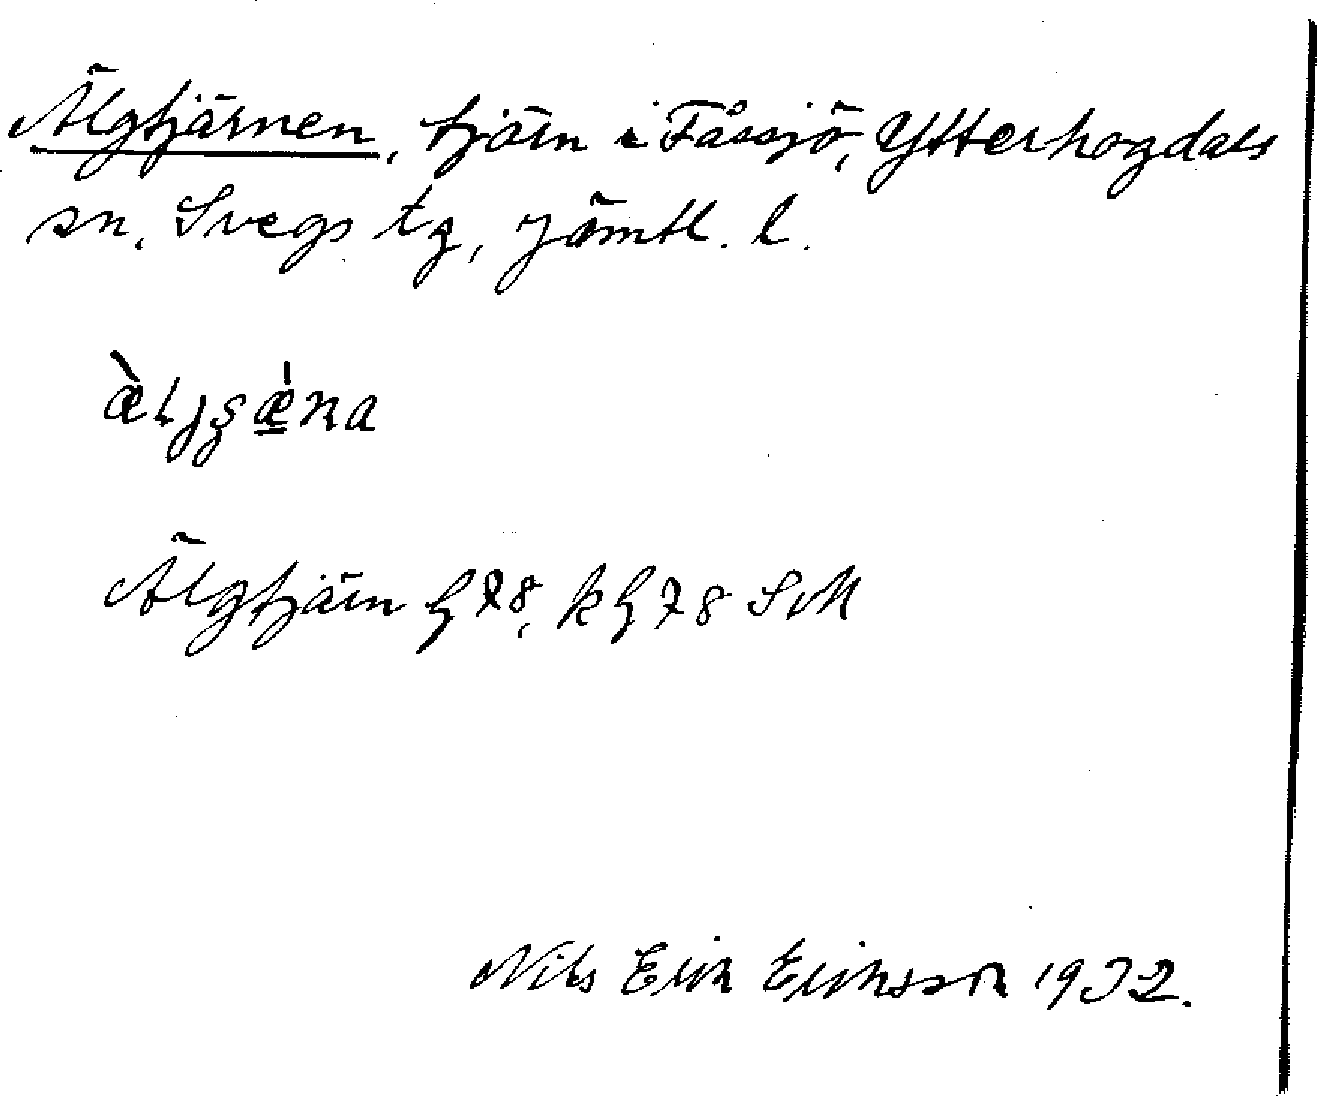 Älgtjärnen, tjärn i Fåssjö, Ytterhogdals
sn, Svegs tg, Jämtl. l.
æ̀ljʂæ̲̍ɳa
Älgtjärn
Nils Erik Eriksson 1932.